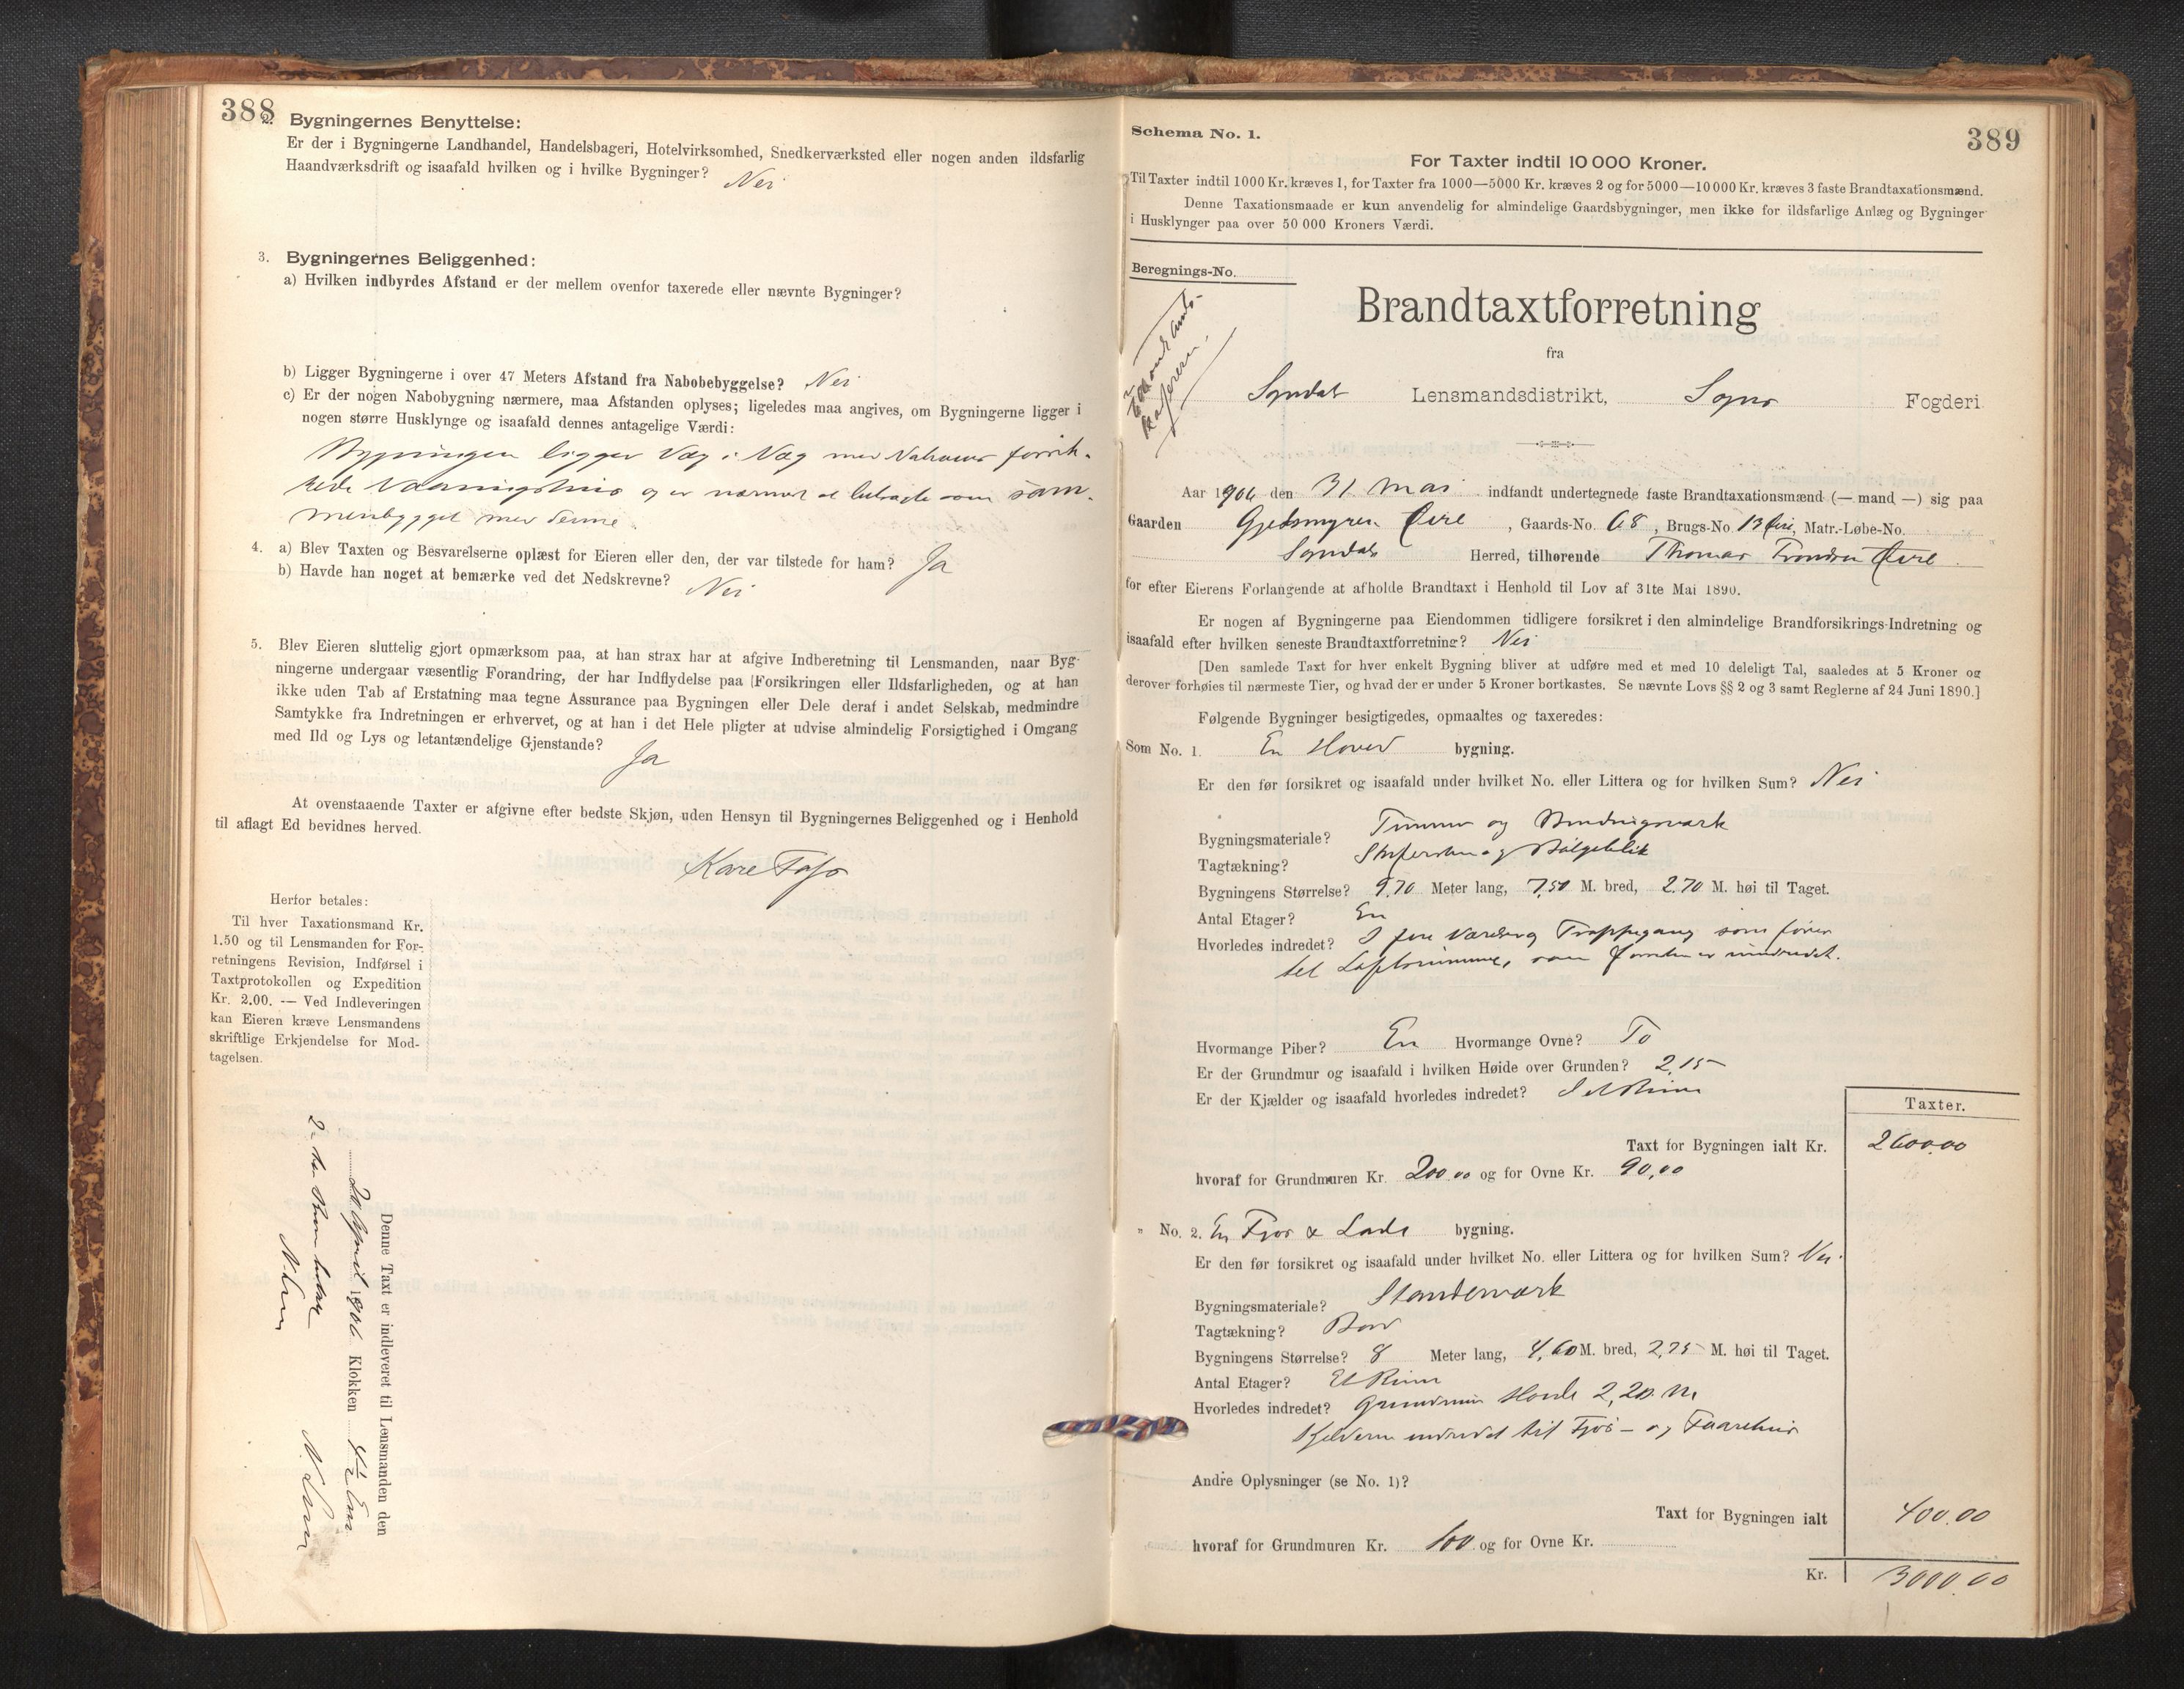 388
2. Bygningernes Benyttelse:
Er der i Bygningerne Landhandel, Handelsbageri, Hotelvirksomhed, Snedkerværksted eller nogen anden ildsfarlig
Haandværksdrift og isaafald hvilken og i hvilke Bygninger? Nei
3. Bygningernes Beliggenhed:
a) Hvilken indbyrdes Afstand er der mellem ovenfor taxerede eller nævnte Bygninger?
b) Ligger Bygningerne i over 47 Meters Afstand fra Nabobebyggelse? Nei
c) Er der nogen Nabobygning nærmere, maa Afstanden oplyses; ligeledes maa angives, om Bygningerne ligger i
nogen større Husklynge og isaafald dennes antagelige Værdi:
Bygningen ligger Væg i Væg med Naboens forsik-
rede Vaaningshus og er nærmest at betragte som sam-
menbygget med denne.
4. a) Blev Taxten og Besvarelserne oplæst for Eieren eller den, der var tilstede for ham? Ja
b) Havde han noget at bemærke ved det Nedskrevne? Nei
5. Blev Eieren sluttelig gjort opmærksom paa, at han strax har at afgive Indberetning til Lensmanden, naar Byg-
ningerne undergaar væsentlig Forandring, der har Indflydelse paa (Forsikringen eller Ildsfarligheden, og at han
ikke uden Tab af Erstatning maa tegne Assurance paa Bygningen eller Dele deraf i andet Selskab, medmindre
Samtykke fra Indretningen er erhvervet, og at han i det Hele pligter at udvise almindelig Forsigtighed i Omgang
med Ild og Lys og letantændelige Gjenstande? Ja
At ovenstaaende Taxter er afgivne efter bedste Skjøn, uden Hensyn til Bygningernes Beliggenhed og i Henhold
til aflagt Ed bevidnes herved.
Herfor betales:
Til hver Taxationsmand Kr.
1.50 og til Lensmanden for For-
retningens Revision, Indførsel i
Taxtprotokollen og Expedition
Kr. 2.00. — Ved Indleveringen
kan Eieren kræve Lensmandens
skriftlige Erkjendelse for Mod-
tagelsen.
Denne Taxt er indleveret til Lensmanden den
20 April 1906 Klokken
Schema No. 1.
389
For Taxter indtil 10 000 Kroner.
Til Taxter indtil 1000 Kr. kræves 1, for Taxter fra 1000—5000 Kr. kræves 2 og for 5000—10 000 Kr. kræves 3 faste Brandtaxationsmænd.
Denne Taxationsmaade er kun anvendelig for almindelige Gaardsbygninger, men ikke for ildsfarlige Anlæg og Bygninger
i Husklynger paa over 50 000 Kroners Værdi.
Beregnings-No.
Brandtaxtforretning
fra
Sogndal Lensmandsdistrikt, Sogns Fogderi
Aar 1904 den 31 Mai indfandt undertegnede faste Brandtaxationsmænd (— mand —) sig paa
Gaarden Gjedsmyren Øire, Gaards-No. 68, Brugs-No. 13 Øire, Matr.-Løbe-No.
Sogndals Herred, tilhørende Thomas Trondsen Øire
for efter Eierens Forlangende at afholde Brandtaxt i Henhold til Lov af 31te Mai 1890.
Er nogen af Bygningerne paa Eiendommen tidligere forsikret i den almindelige Brandforsikrings-Indretning og
isaafald efter hvilken seneste Brandtaxtforretning? Nei
[Den samlede Taxt for hver enkelt Bygning bliver at udføre med et med 10 deleligt Tal, saaledes at 5 Kroner og
derover forhøies til nærmeste Tier, og hvad der er under 5 Kroner bortkastes. Se nævnte Lovs §§ 2 og 3 samt Reglerne af 24 Juni 1890.]
Følgende Bygninger besigtigedes, opmaaltes og taxeredes:
Som No. 1. En Hoved bygning.
Er den før forsikret og isaafald under hvilket No. eller Littera og for hvilken Sum? Nei
Bygningsmateriale? Tømmer og Bindingsværk
Tagtækning? Skifersten og Bølgeblik
Bygningens Størrelse? 9,70 Meter lang, 7,50 M. bred, 2.70 M. høi til Taget.
Antal Etager? En
Hvorledes indredet? I fire Værelser og Trappegang som fører
til Loftsrummet, som foruden er uindredet.
Hvormange Piber? En Hvormange Ovne? To
Er der Grundmur og isaafald i hvilken Høide over Grunden? 2,15
Er der Kjælder og isaafald hvorledes indredet? I et Rum
Taxter.
Taxt for Bygningen ialt Kr. 2600.00
hvoraf for Grundmuren Kr. 200.00 og for Ovne Kr. 90,00
" No. 2. En Fjøs & Lade bygning.
Er den før forsikret og isaafald under hvilket No. eller Littera og for hvilken Sum? Nei.
Bygningsmateriale? Standerværk
Tagtækning? Bord
Bygningens Størrelse? 8 Meter lang, 4,60 M. bred, 2,75 M. høi til Taget.
Antal Etager? Et Rum
Hvorledes indredet? Grundmur Høide 2,20 M
Kjelderen indredet til Fjøs- og Faarehus
Andre Oplysninger (se No. 1)?
Taxt for Bygningen ialt 400.00
hvoraf for Grundmuren Kr. 100 og for Ovne Kr.
Kr. 3000.00